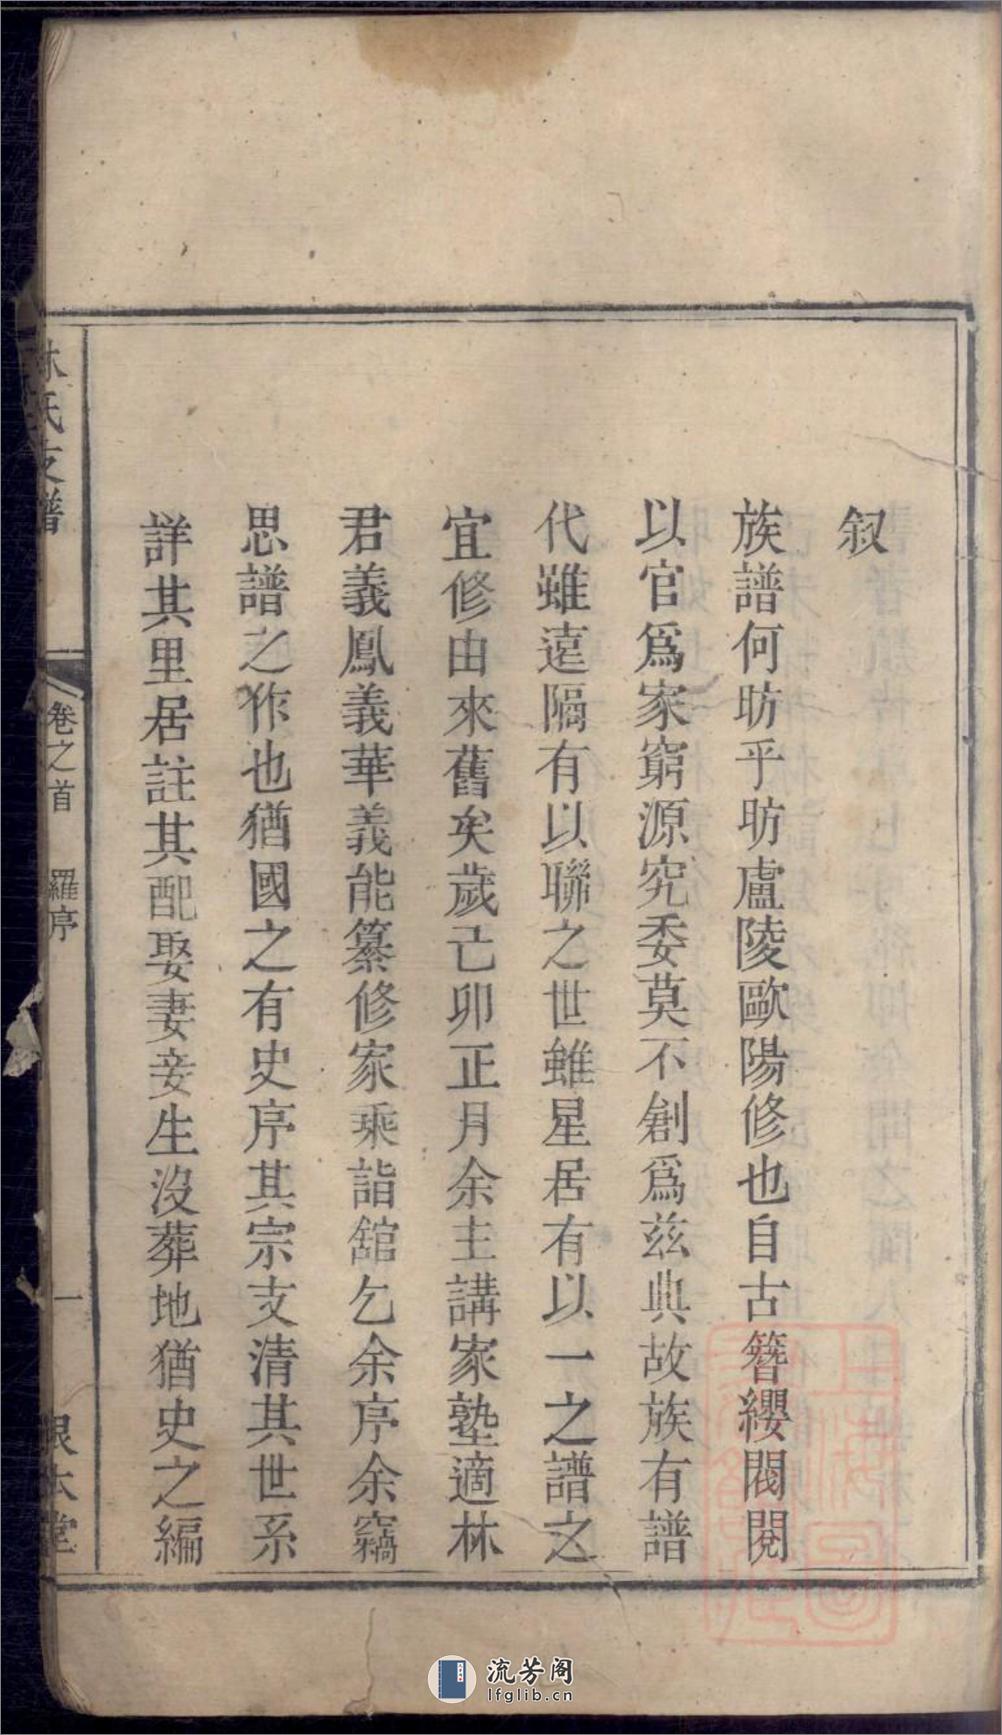 叙
族譜何昉乎昉盧陵歐陽修也自古簪纓閥閱
以官爲家窮源究委莫不創爲兹典故族有譜
代雖遠隔有以聯之世雖星居有以一之譜之
宜修由來舊矣歲己卯正月余主講家塾適林
君義鳳義華義能纂修家乘詣舘乞余序余竊
思譜之作也猶國之有史序其宗支清其世系
詳其里居註其配娶妻妾生沒葬地猶史之編
林氏支譜
卷之首
羅序
一
根本堂
流芳阁
lfglib.cn